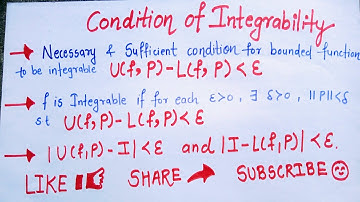 Condition of Integrability
→ Necessary & Sufficient condition for bounded function
to be integrable U(f,P)-L(f,P)<ε
→ f is Integrable if for each ε>0, ∃ δ>0, ||P||<δ
st U(f,P)-L(f,P)<ε
→ |U(f,P)-I|<ε and |I-L(f,P)|<ε.
LIKE SHARE SUBSCRIBE